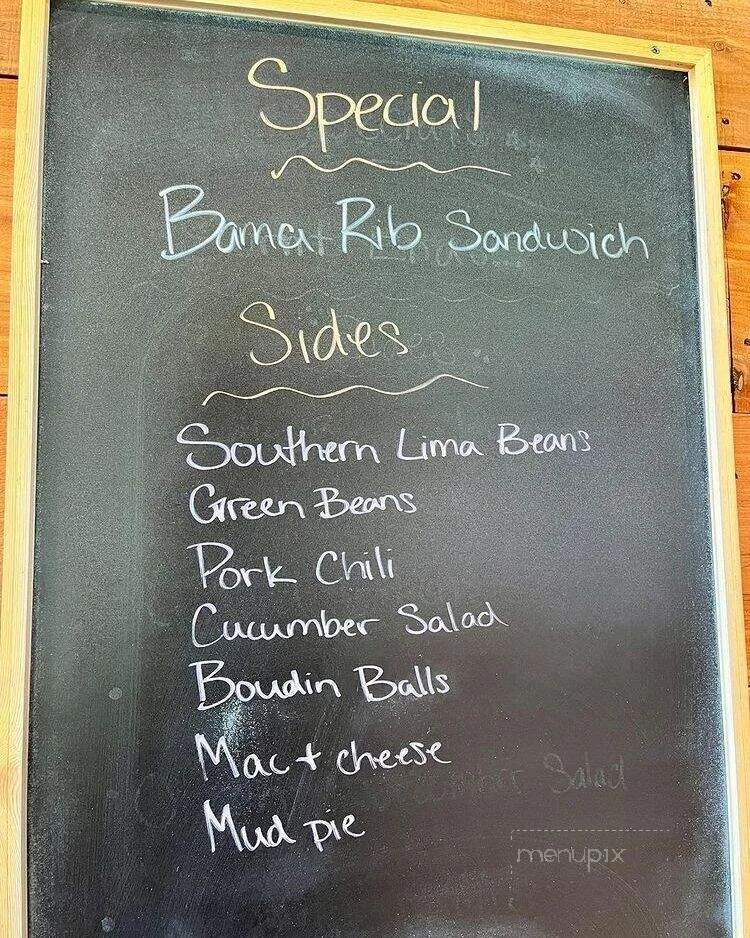 Special
Bama Rib Sandwich
Sides
Southern Lima Beans
Green Beans
Pork Chili
Cucumber Salad
Boudin Balls
Mac + cheese
Salad
Mud pie
menupix